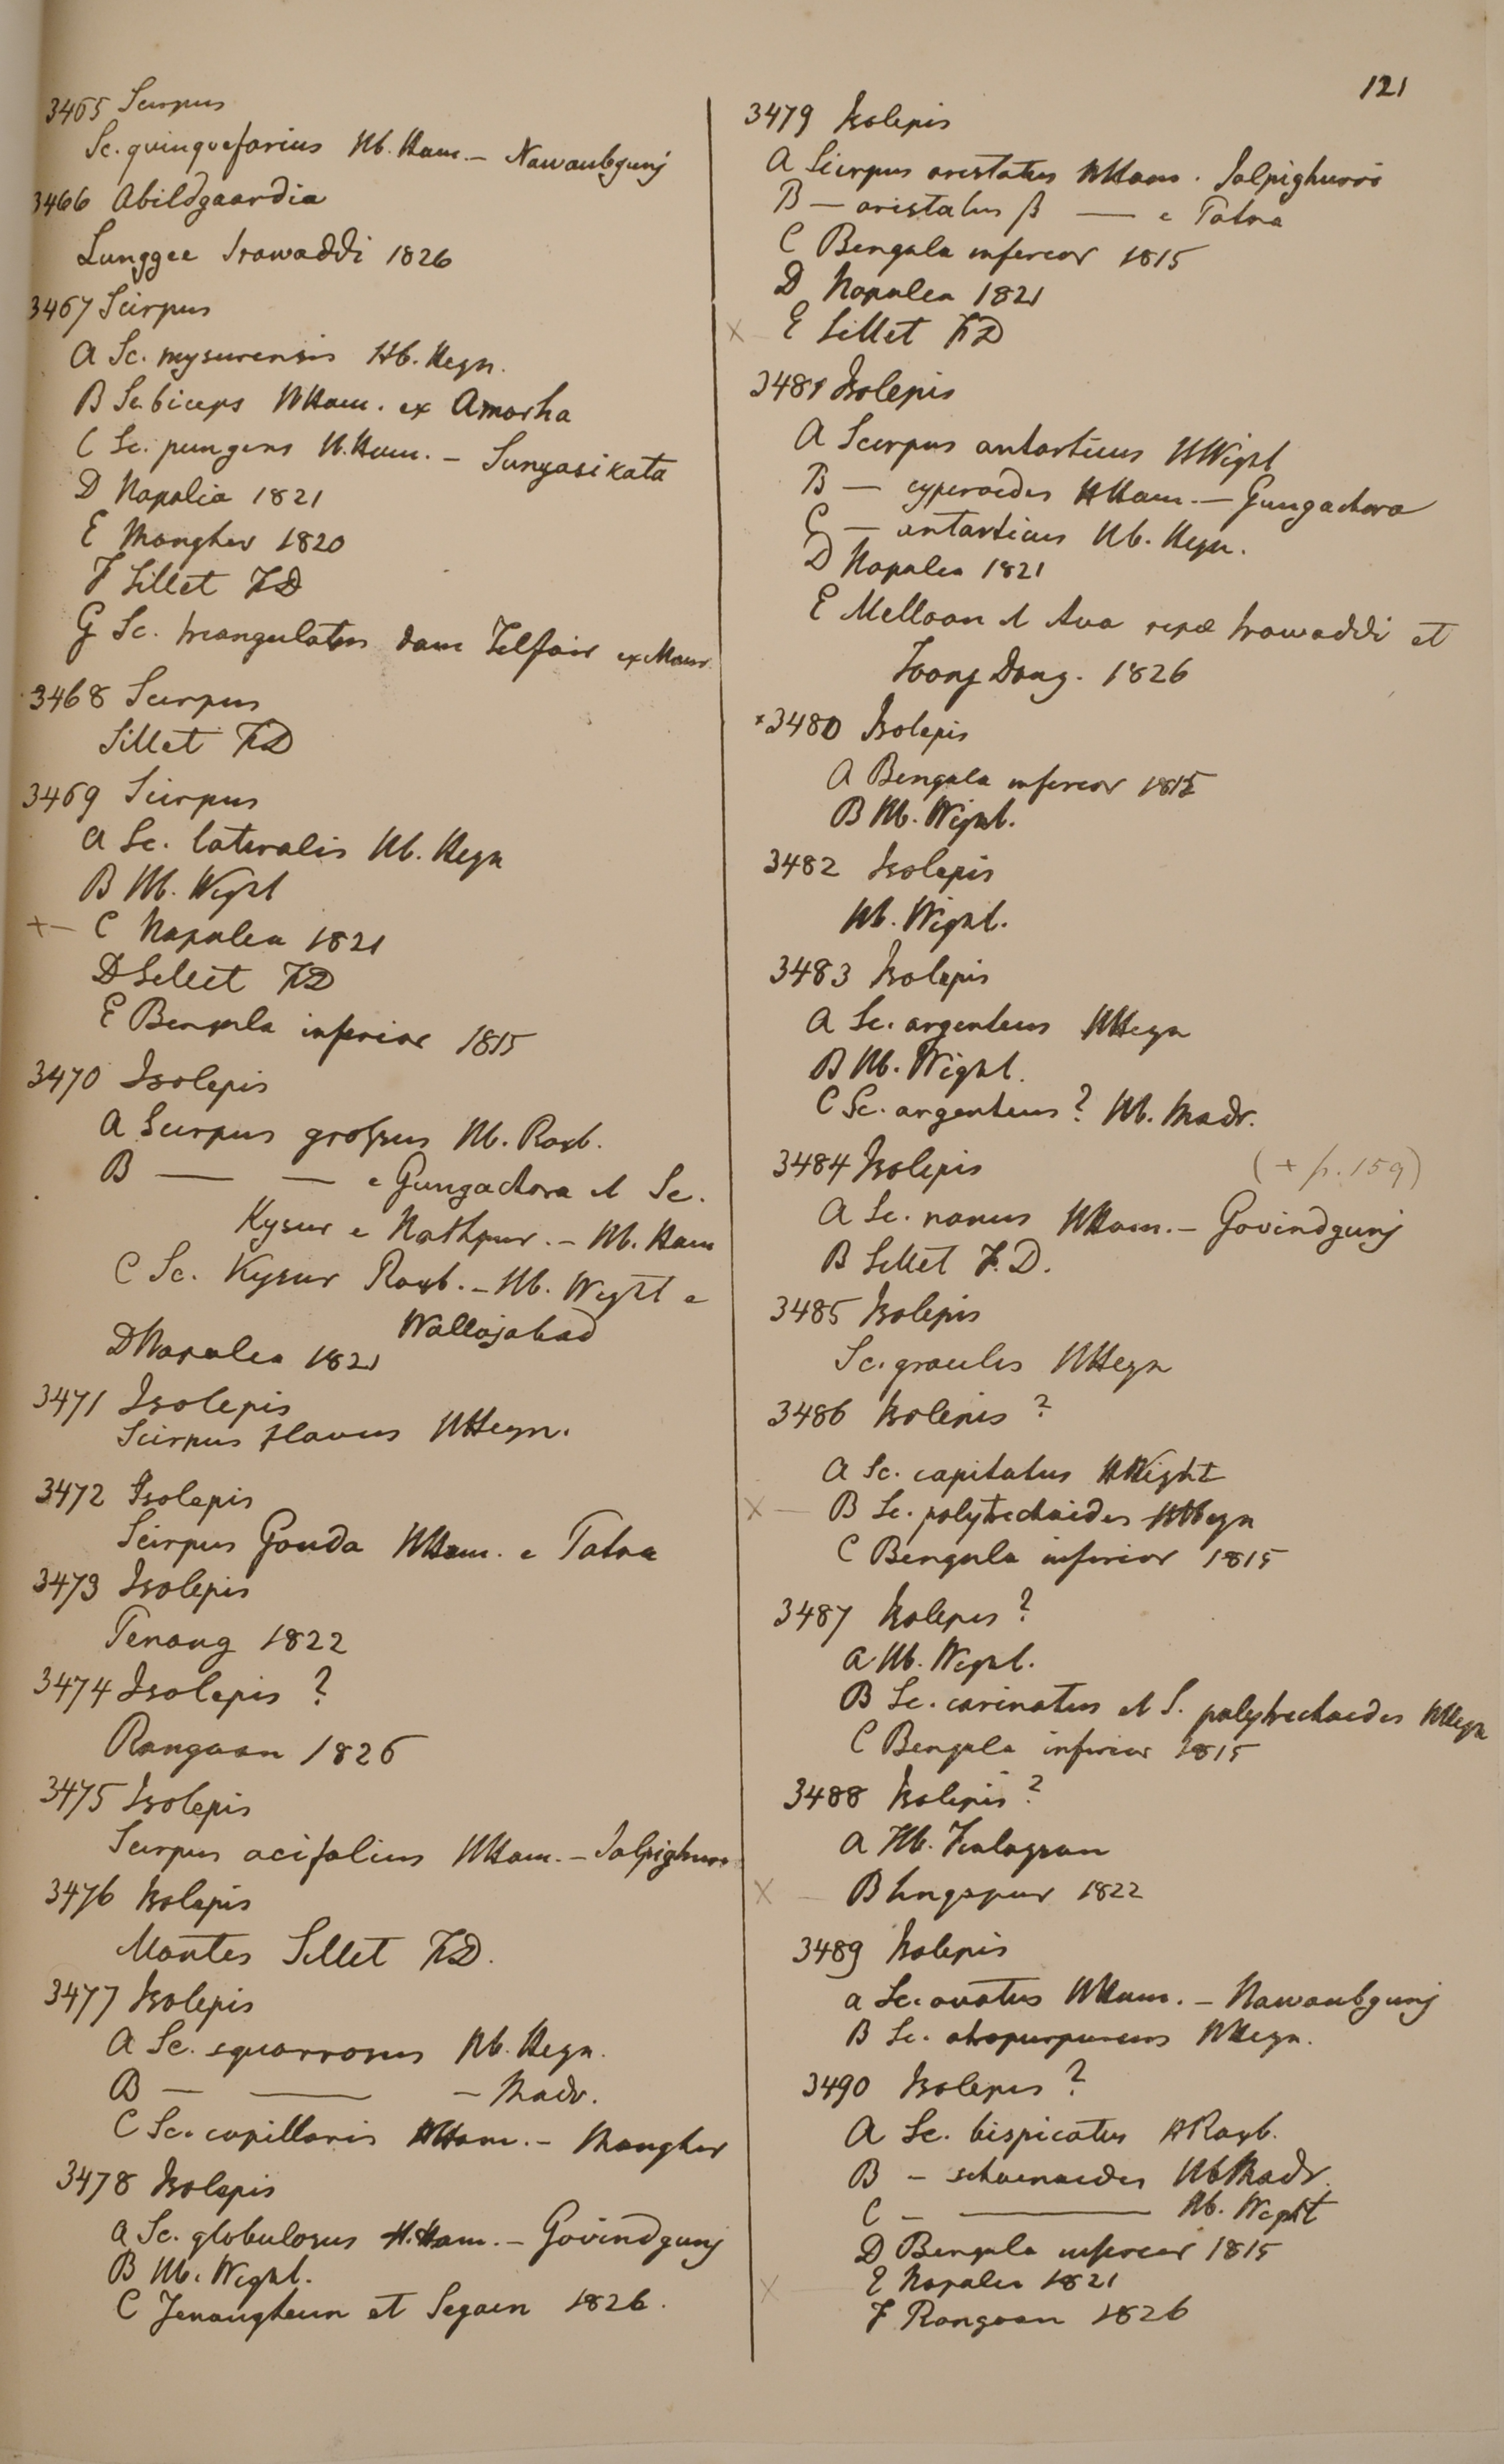 121
3465 Scirpus
Sc. quinquefarius Hb. Ham. – Nawaubgunj
3466 Abildgaardia
Lunggee Irawaddi 1826
3467 Scirpus
A Sc. mysurensis Hb. Heyn.
B Sc. biceps HHam. ex Amorha
C Sc. pungens H. Ham. – Sungasikata
D Napalia 1821
E Mongher 1820
F Sillet FD
G Sc. triangulatus dam Telfair ex Maur
3468 Scirpus
Sillet FD
3469 Scirpus
A Sc. lateralis Hb. Heyn
B Hb. Wight
+ – C Napalea 1821
D Sillet FD
E Bengala inferior 1815
3470 Isolepis
A Scirpus grossus Hb. Roxb.
B — — e Gungachora et Sc.
Kysur e Nathpur. – Hb. Ham
C Sc. Kysur Roxb. – Hb. Wight e
Wallajabad
D Napalea 1821
3471 Isolepis
Scirpus flavus HHeyn.
3472 Isolepis
Scirpus Gouda HHam. e Patna
3473 Isolepis
Penang 1822
3474 Isolepis ?
Rangoon 1826
3475 Isolepis
Scirpus acifolius HHam. – Jalpighurri
3476 Isolepis
Montes Sillet FD.
3477 Isolepis
A Sc. squarrosus Hb. Heyn.
B — — – Madr.
C Sc. capillaris HHam. – Mongher
3478 Isolepis
A Sc. globulosus H. Ham. – Govindgunj
B Hb. Wight.
C Jenangheun et Segaen 1826.
3479 Isolepis
A Scirpus aristatus HHam. Jalpighurri
B — aristatus β — e Patna
C Bengala inferior 1815
D Napalea 1821
x E Sillet FD
3481 Isolepis
A Scirpus antarticus HWight
B — cyperoides HHam. – Gungachora
C — antarticus Hb. Heyn.
D Napalea 1821
E Melloon et Ava ripæ Irawaddi et
Toong Dong. 1826
x 3480 Isolepis
A Bengala inferior 1815
B Hb. Wight.
3482 Isolepis
Hb. Wight.
3483 Isolepis
A Sc. argenteus HHeyn
B Hb. Wight.
C Sc. argenteus ? Hb. Madr.
3484 Isolepis (+ p. 159)
A Sc. nanus HHam. – Govindgunj
B Sillet F.D.
3485 Isolepis
Sc. gracilis HHeyn
3486 Isolepis ?
A Sc. capitatus HWight
x — B Sc. polytrichoides HHeyn
C Bengala inferior 1815
3487 Isolepis ?
A Hb. Wight.
B Sc. carinatus et S. polytrichoides HHeyn
C Bengala inferior 1815
3488 Isolepis ?
A Hb. Finlayson
x – B Singapur 1822
3489 Isolepis
a Sc. ovatus HHam. – Nawaubgunj
B Sc. atropurpureus HHeyn.
3490 Isolepis ?
A Sc. bispicatus HRoxb.
B – schoenoides Hb Madr.
C – — Hb. Wight
D Bengala inferior 1815
x E Napalea 1821
F Rangoon 1826